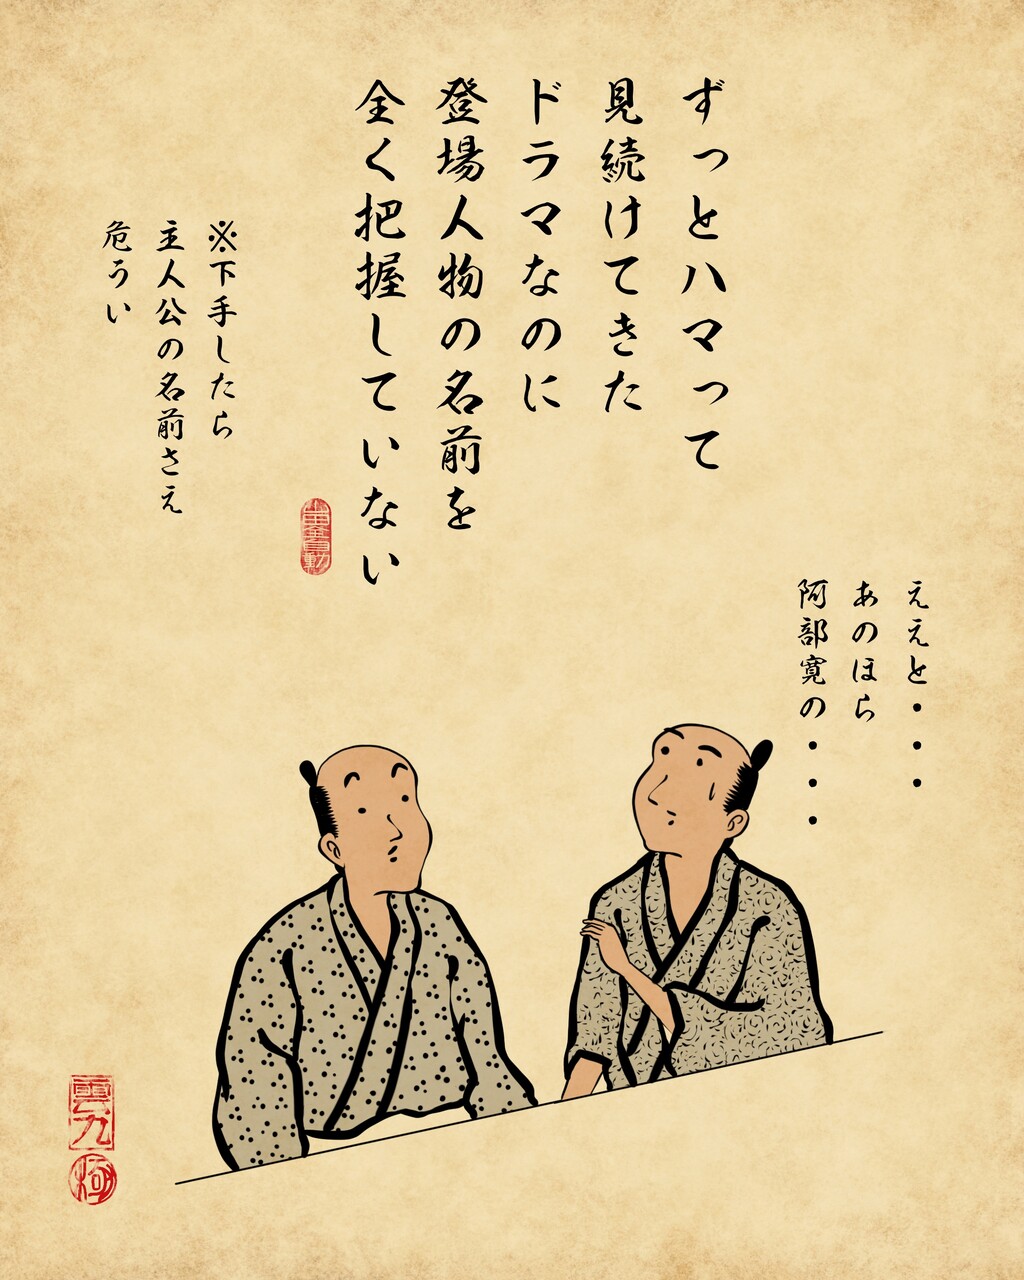 ずっとハマって
見続けてきた
ドラマなのに
登場人物の名前を
全く把握していない
※下手したら
主人公の名前さえ
危うい
ええと・・・
あのほら
阿部寛の・・・